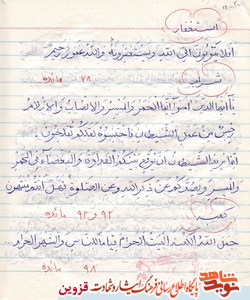 استغفار
افلا یتوبون الی الله و یستغفرونه والله غفور رحیم
۷۸ مائده
شیطان
یا ایها الذین امنوا انما الخمر والمیسر والانصاب والازلام
رجس من عمل الشیطان فاجتنبوه لعلکم تفلحون
انما یرید الشیطان ان یوقع بینکم العداوة والبغضاء فی الخمر
والمیسر و یصدکم عن ذکر الله وعن الصلوة فهل انتم منتهون
۹۲ و ۹۳ مائده
کعبه
جعل الله الکعبة البیت الحرام قیاما للناس والشهر الحرام
۹۸ مائده
نوید شاهد
پایگاه اطلاع رسانی فرهنگ ایثار و شهادت
قزوین